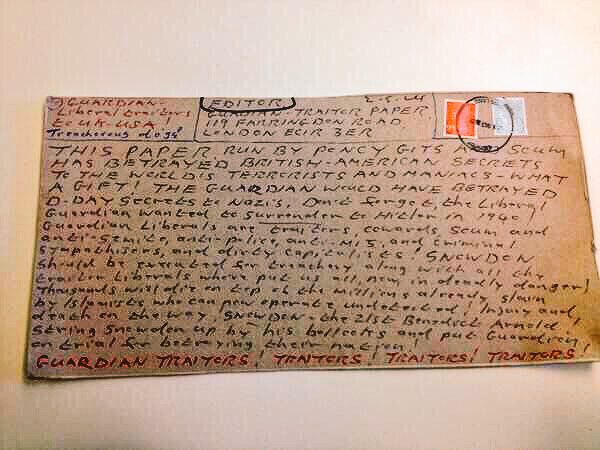 GUARDIAN-
Liberal traitors
to UK-USA
Treacherous dogs!
EDITOR
GUARDIAN-TRAITOR PAPER
119 FARRINGDON ROAD
LONDON EC1R 3ER
THIS PAPER RUN BY PONCY GITS AND SCUM
HAS BETRAYED BRITISH-AMERICAN SECRETS
TO THE WORLD'S TERRORISTS AND MANIACS-WHAT
A GIFT! THE GUARDIAN WOULD HAVE BETRAYED
D-DAY Secrets to Nazis. Don't forget, the Liberal
Guardian wanted to surrender to Hitler in 1940
Guardian Liberals are traitors cowards, scum and
anti-Semite, anti-police, anti-MI5, and criminal
sympathisers, and dirty capitalists! SNOWDEN
should be for treachery along with all the
traitor Liberals who've put us all, now, in deadly danger!
Thousands will die on top of the millions already slain
by Islamists who can now operate undetected! Injury and
death on the way. SNOWDEN-the 21st Benedict Arnold!
String Snowden up by his bollocks and put Guardian
on trial for betraying their nation!
GUARDIAN TRAITORS! TRAITORS! TRAITORS! TRAITORS